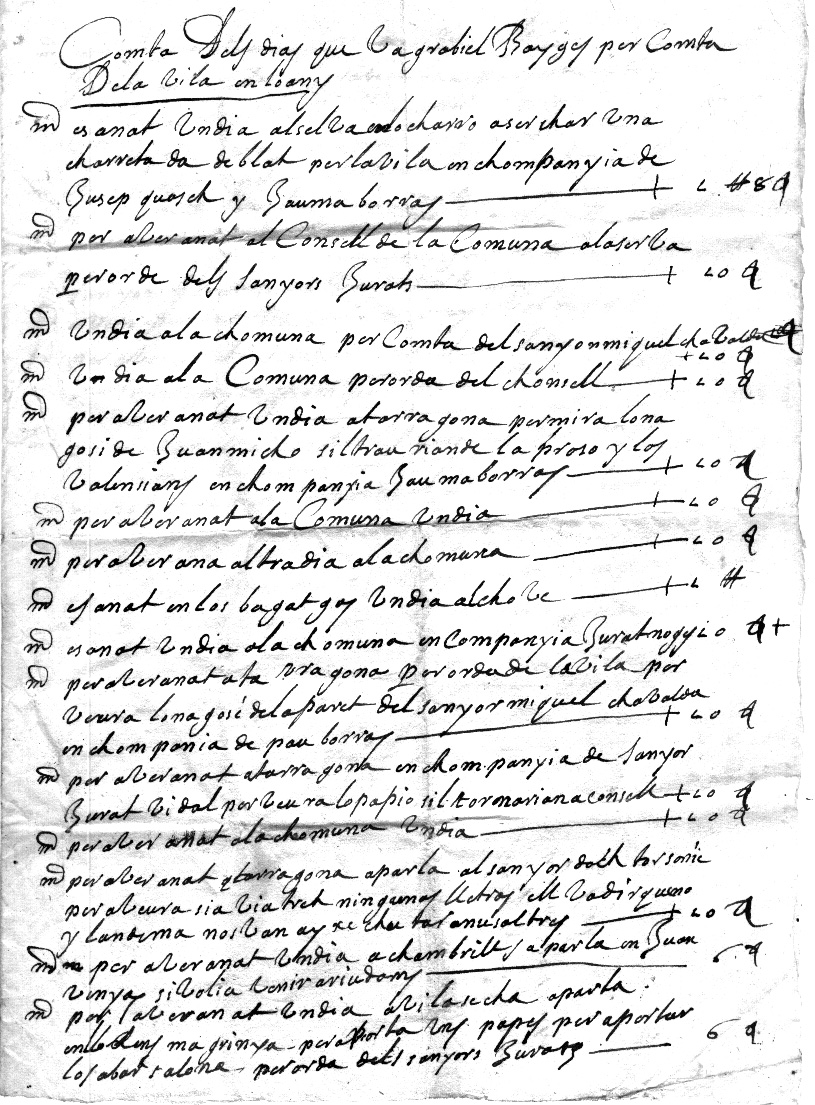 Comta Dels dias que Va grabiel Bayges per Comta
De la vila en loany
m es anat Vn dia al selva en lo charro a serchar Vna
charretada de blat per la vila en chompanyia de
Jusep quasch y Jauma borras + L # 8 q
m per aver anat al Consell de la Comuna a la serva
per orde dels sanyors Jurats + L o q
m Vn dia a la chomuna per Comta del sanyor miquel chavalda
+ L o q
m Vn dia a la Comuna per orda del chonsell + L o q
m per aver anat Vn dia a tarragona per mira lo na
gosi de Juan micho si l trau rian de la proso y los
Valensians en chompanyia Jauma borras + L o q
m per aver anat a la Comuna Vn dia + L o q
m per aver ana altra dia a la chomuna + L o q
m es anat en los bagatges Vn dia al chove + L #
m es anat Vn dia a la chomuna en Companyia Jurat nogg L o q +
m per aver anat a ta rragona per orda de la Vila per
veura lo nagosé de la paret del sanyor miquel chavalda
en chompania de pau borras + L o q
m per aver anat a tarragona en chompanyia de sanyor
Jurat Vidal per veura lo papio si l tornarian a consell + L o q
m per aver anat a la chomuna Vn dia + L o q
m per aver anat a tarragona a parla al sanyor doch tor
per aveura si avia tret ningunas lletras ell va dir que no
y l andema nos van ay nusaltres + L o q
m per aver anat Vn dia a chambrills a parla en Juan
Vinyas si volia venir a riudoms 6 q
m per aver anat Vn dia a vilasecha a parla
magrinya per a porta Vns papes per aportar
los a bar salona per orda dels sanyors Jurats 6 q